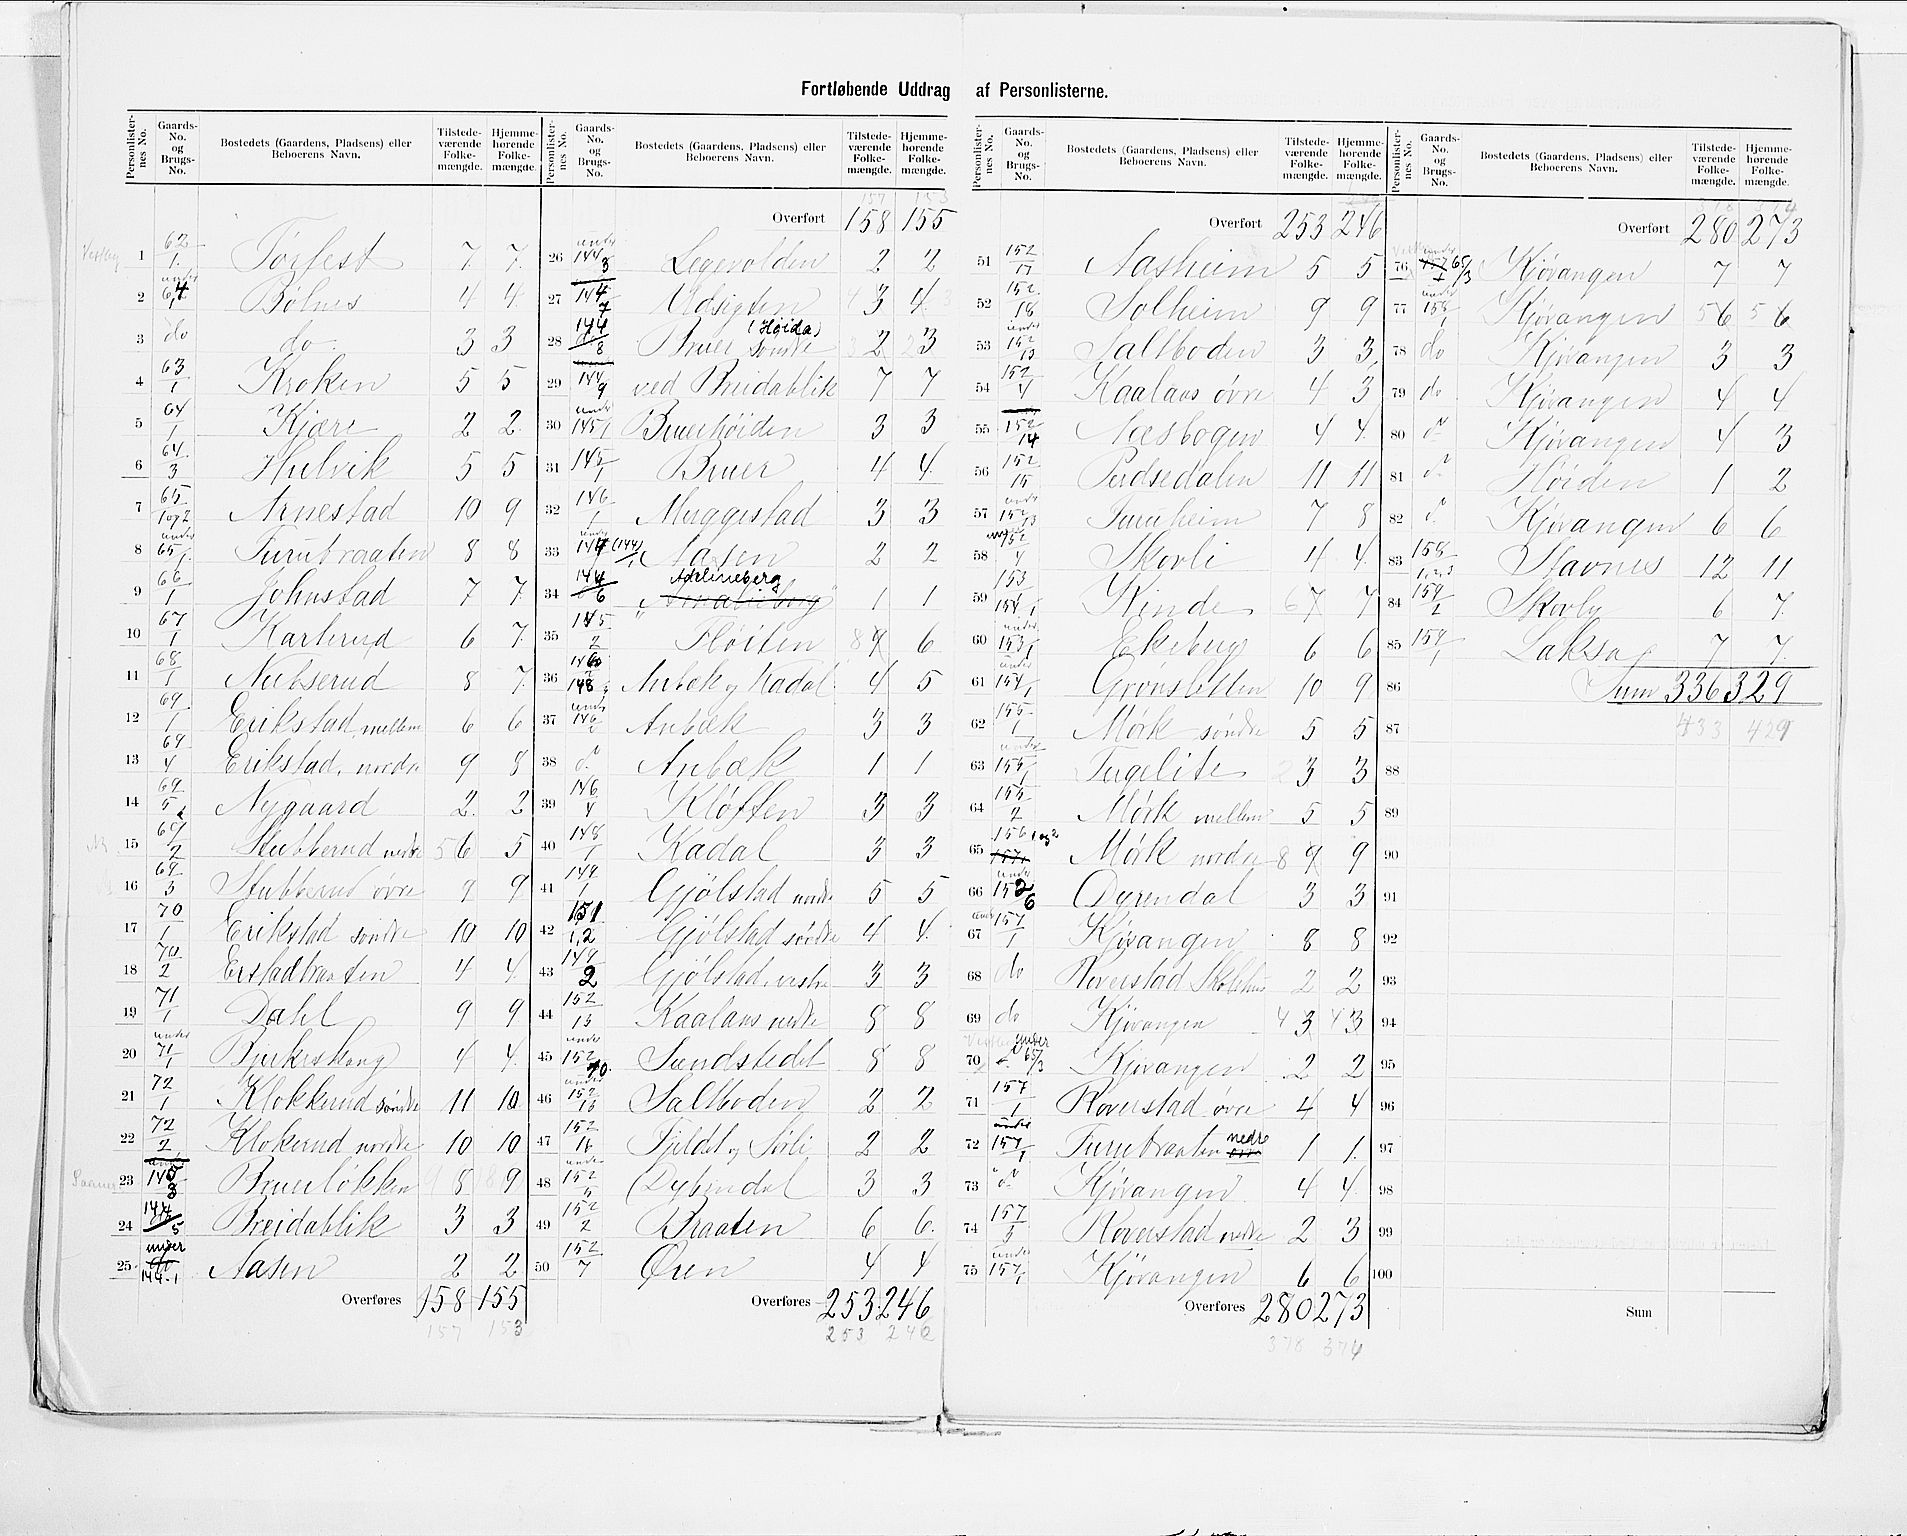 Fortløbende Uddrag af Personlisterne.
Personlister-nes No. | Gaards-No. og Brugs-No. | Bostedets (Gaardens, Pladsens) eller Beboerens Navn. | Tilstede-værende Folke-mængde. | Hjemme-hørende Folke-mængde.
1 62/1 Torfest 7 7
2 under 64/1 Bølnes 4 4
3 do do 3 3
4 63/1 Kroken 5 5
5 64/1 Kjære 2 2
6 64/3 Hulvik 5 5
7 65/1 og 2 Arnestad 10 9
8 under 65/1 Furubraaten 8 8
9 66/1 Johnstad 7 7
10 67/1 Karlsrud 6 7
11 68/1 Nubserud 8 7
12 69/1 Erikstad, mellem 6 6
13 69/4 Erikstad, nordre 9 8
14 69/5 Nygaard 2 2
15 69/2 Stubberud nedre 6 5
16 69/3 Stubberud øvre 9 9
17 70/1 Erikstad søndre 10 10
18 70/2 Erstadbraaten 4 4
19 71/1 Dahl 9 9
20 under 71/1 Bjerkeskaug 4 4
21 72/1 Klokkerud søndre 11 10
22 72/2 Klokerud nordre 10 10
23 145/3 Bruerløkken 8 9
24 144/5 Breidablik 3 3
25 under 144.1 Aasen 2 2
Overføres 158 155
157 153
Personlister-nes No. | Gaards-No. og Brugs-No. | Bostedets (Gaardens, Pladsens) eller Beboerens Navn. | Tilstede-værende Folke-mængde. | Hjemme-hørende Folke-mængde.
157 153
Overført 158 155
26 144/3 Legevolden 2 2
27 144/7 Udsigten 3 4
28 144/8 Bruer søndre (Høida) 2 3
29 144/9 ved Breidablik 7 7
30 under 145/1 Bruerhöiden 3 3
31 145/1 Bruer 4 4
32 146/1 Muggestad 3 3
33 under 144 (144)/1 Aasen 2 2
34 144/6 Adelineberg 1 1
35 145/2 Fløiten 9 6
36 148 Aubæk og Kadal 4 5
37 under 146 Aubæk 3 3
38 do Aubæk 1 1
39 146/4 Kløften 3 3
40 148/1 Kadal 3 3
41 149/1 Gjølstad nordre 5 5
42 151/1,2 Gjølstad søndre 4 4
43 149/2 Gjølstad, vestre 3 3
44 152/13 Kaalaas nedre 8 8
45 under 152/10 Sundstedet 8 8
46 under 152/13 Saltboden 2 2
47 152/16 Fjeldet og Sørli 2 2
48 under 152/5 Dybendal 3 3
49 152/2 Braaten 6 6
50 152/7 Øren 4 4
Overføres 253 246
253 246
Personlister-nes No. | Gaards-No. og Brugs-No. | Bostedets (Gaardens, Pladsens) eller Beboerens Navn. | Tilstede-værende Folke-mængde. | Hjemme-hørende Folke-mængde.
Overført 253 246
51 152/17 Aasheim 5 5
52 152/18 Solheim 9 9
53 under 152/13 Saltboden 3 3
54 152/4 Kaalaas øvre 4 3
55 152/14 Næsbogen 4 4
56 152/15 Perdsedalen 11 11
57 under 152/13 Furuheim 7 8
58 152/4 Skovli 4 4
59 153/1 154/1 Kinde 7 7
60 under 153/1 Ekeberg 6 6
61 under 154/1 Grønsletten 10 9
62 155/1 Mørk søndre 5 5
63 under 155/1 Fugelite 3 3
64 155/2 Mørk mellem 5 5
65 156/1 og 2 Mørk nordre 9 9
66 under 152/6 Dyrendal 3 3
67 under 157/1 Kjøvangen 8 8
68 do Roverstad Skolehus 2 2
69 do Kjøvangen 3 3
70 under 65/3 Kjøvangen 2 2
71 157/1 Roverstad øvre 4 4
72 under 157/1 Furubraaten nedre 1 1
73 do Kjøvangen 4 4
74 157/3 Roverstad nedre 2 3
75 under 157/1 Kjøvangen 6 6
Overføres 280 273
378 374
Personlister-nes No. | Gaards-No. og Brugs-No. | Bostedets (Gaardens, Pladsens) eller Beboerens Navn. | Tilstede-værende Folke-mængde. | Hjemme-hørende Folke-mængde.
Overført 280 273
76 65/3 Kjøvangen 7 7
77 under 158/1 Kjøvangen 6 6
78 do Kjøvangen 3 3
79 do Kjøvangen 4 4
80 do Kjøvangen 4 3
81 do Høiden 1 2
82 do Kjøvangen 6 6
83 158/1,2,3 Stavnes 12 11
84 159/1 Skovly 6 7
85 159/1 Laksa 7 7
86 Sum 336 329
87 433 429
88
89
90
91
92
93
94
95
96
97
98
99
100
Sum